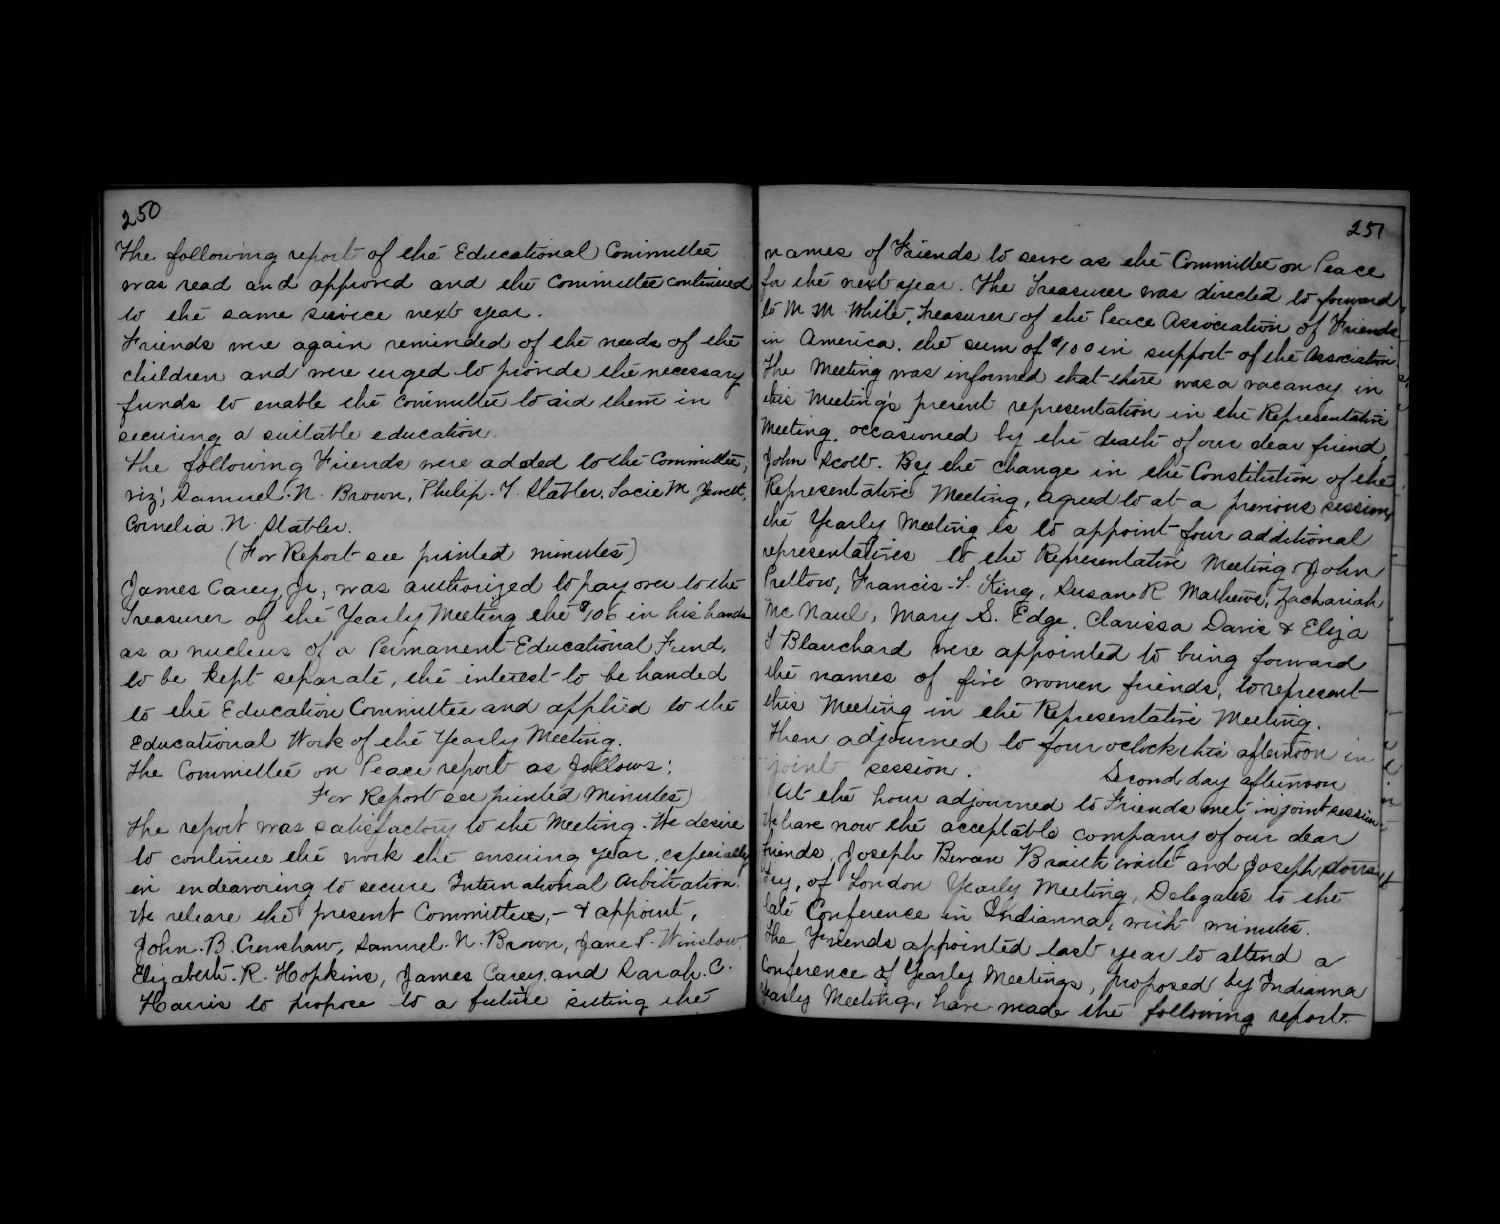 250
The following report of the Educational Committee
was read and approved and the Committee continued
to the same service next year.
Friends were again reminded of the needs of the
children and were urged to provide the necessary
funds to enable the committee to aid them in
securing a suitable education.
The following Friends were added to the Committee,
viz; Samuel. N. Brown, Philip. T. Stabler, Lacie M
Cornelia. N. Stabler.
(For Report see printed minutes)
James Carey Jr, was authorized to pay over to the
Treasurer of the Yearly Meeting the $106 in his hands
as a nucleus of a Permanent Educational Fund,
to be kept separate, the interest to be handed
to the Education Committee and applied to the
Educational Work of the Yearly Meeting.
The Committee on Peace report as follows:
For Report see printed Minutes)
The report was satisfactory to the Meeting. We desire
to continue the work the ensuing year, especially
in endeavoring to secure International Arbitration.
We release the present Committee, - & appoint,
John. B. Crenshaw, Samuel. N. Brown, Jane P. Winslow,
Elizabeth. R. Hopkins, James Carey, and Sarah. C.
Harris to propose to a future sitting the
251
names of Friends to serve as the Committee on Peace
for the next year. The Treasurer was directed to forward
to M M. White, Treasurer of the Peace Association of Friends
in America. the sum of $100 in support of the Association
The Meeting was informed that there was a vacancy in
this Meeting's present representation in the Representative
Meeting, occasioned by the death of our dear friend,
John Scott. By the change in the Constitution of the
Representative Meeting, agreed to at a previous session,
the Yearly Meeting is to appoint four additional
representatives to the Representative Meeting. John
Pretlow, Francis. T. King, Susan. R. Mathews, Zachariah
McNaul, Mary S. Edge, Clarissa Davis & Eliza
J Blanchard were appointed to bring forward
the names of five women friends, to represent
this Meeting in the Representative Meeting.
Then adjourned to four oclock this afternoon in
joint session.
Second day afternoon
At the hour adjourned to Friends met in joint session.
We have now the acceptable company of our dear
Friends, Joseph Bevan Braithwaite and Joseph
Fry, of London Yearly Meeting, Delegates to the
late Conference in Indianna, with minutes.
The Friends appointed last year to attend a
Conference of Yearly Meetings, proposed by Indianna
Yearly Meeting, have made the following report.